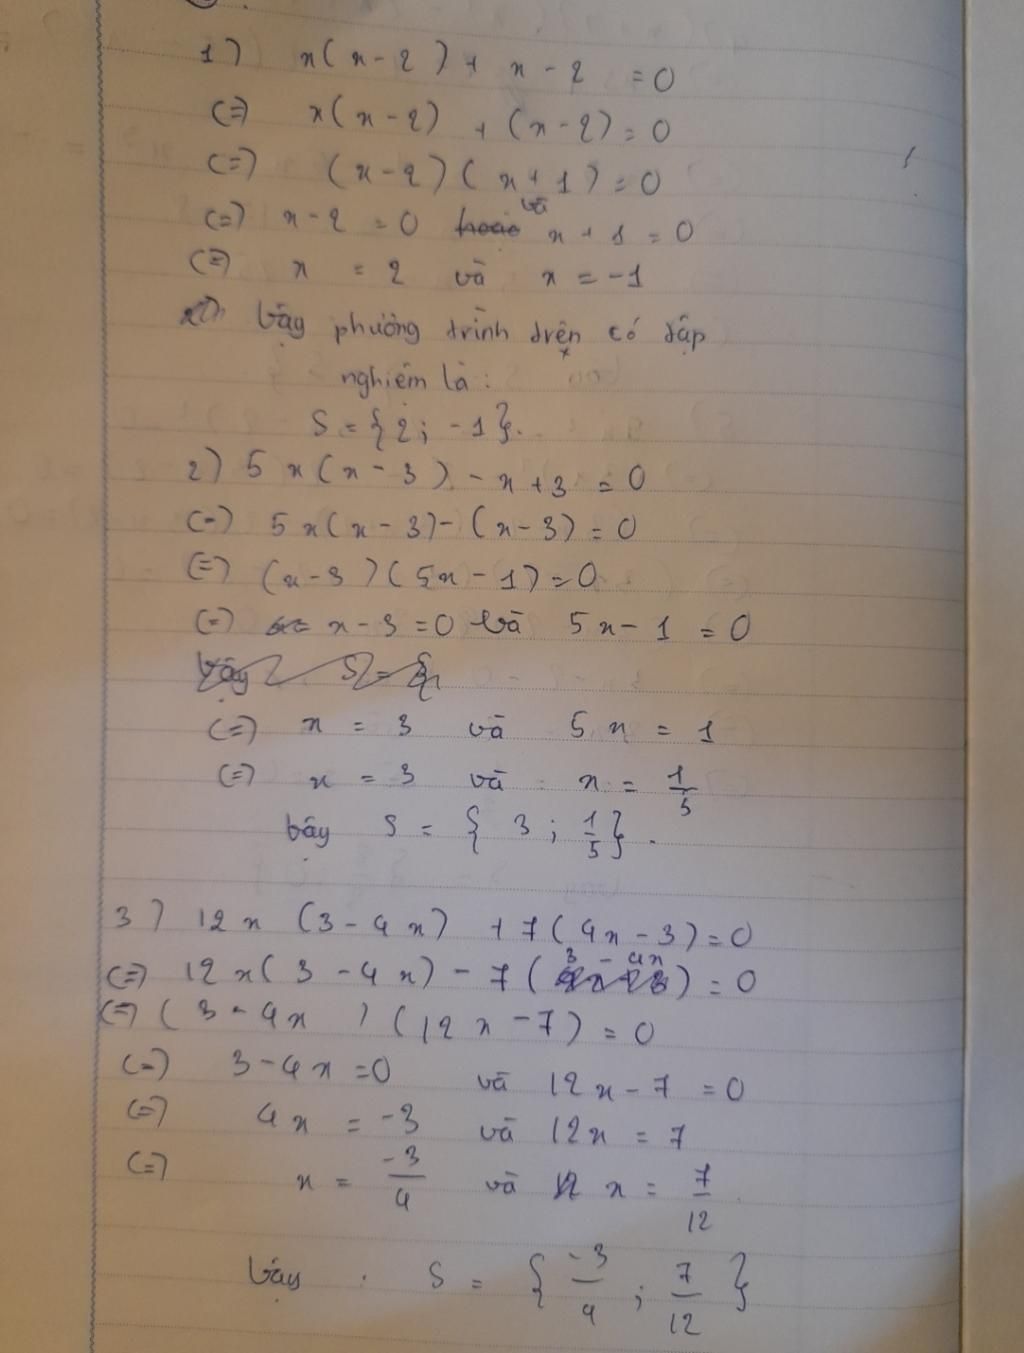 1) x(x-2) + x-2 = 0
(=) x(x-2) + (x-2) = 0
(=) (x-2)(x+1) = 0
(=) x-2 = 0 và x+1 = 0
(=) x = 2 và x = -1
Vậy phương trình trên có tập
nghiệm là:
S = {2; -1}.
2) 5x(x-3) - x+3 = 0
(=) 5x(x-3) - (x-3) = 0
(=) (x-3)(5x-1) = 0
(=) x-3 = 0 và 5x-1 = 0
(=) x = 3 và 5x = 1
(=) x = 3 và x = 1/5
Vậy S = {3; 1/5}.
3) 12x(3-4x) + 7(4x-3) = 0
(=) 12x(3-4x) - 7(3-4x) = 0
(=) (3-4x)(12x-7) = 0
(=) 3-4x = 0 và 12x-7 = 0
(=) 4x = -3 và 12x = 7
(=) x = -3/4 và x = 7/12
Vậy S = {-3/4; 7/12}